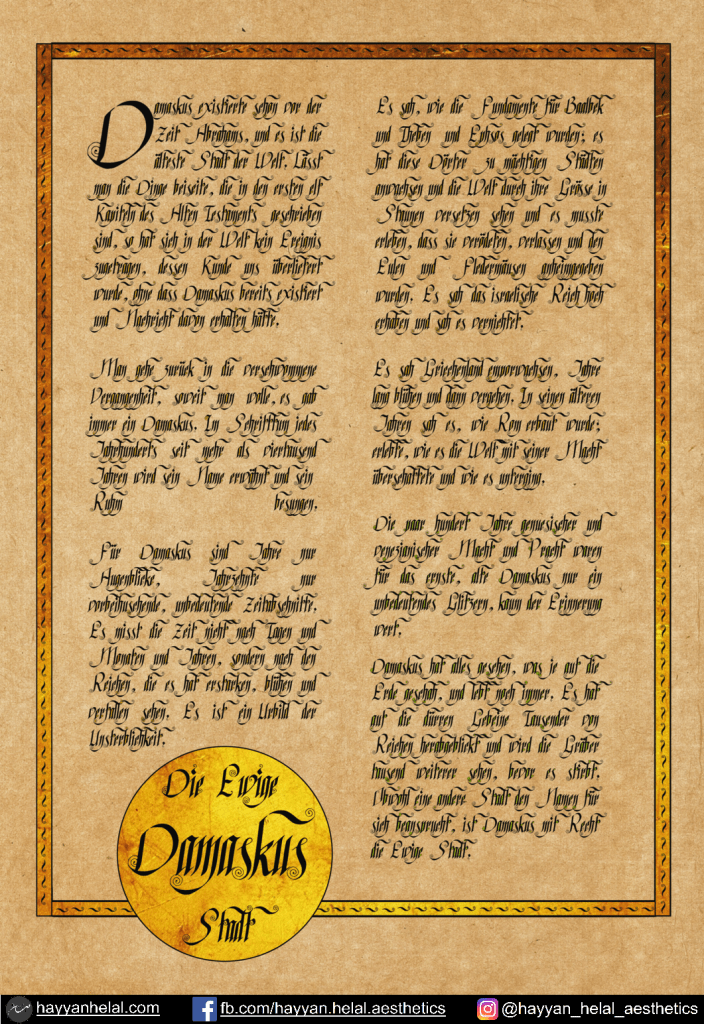 Damaskus existierte schon vor der
Zeit Abrahams, und es ist die
älteste Stadt der Welt. Lässt
man die Dinge beiseite, die in den ersten elf
Kapiteln des Alten Testaments geschrieben
sind, so hat sich in der Welt kein Ereignis
zugetragen, dessen Kunde uns überliefert
wurde, ohne dass Damaskus bereits existiert
und Nachricht davon erhalten hätte.
Man gehe zurück in die verschwommene
Vergangenheit, soweit man wolle, es gab
immer ein Damaskus. Im Schrifttum jedes
Jahrhunderts seit mehr als viertausend
Jahren wird sein Name erwähnt und sein
Ruhm besungen.
Für Damaskus sind Jahre nur
Augenblicke, Jahrzehnte nur
vorbeihuschende, unbedeutende Zeitabschnitte.
Es misst die Zeit nicht nach Tagen und
Monaten und Jahren, sondern nach den
Reichen, die es hat erstarken, blühen und
verfallen sehen. Es ist ein Urbild der
Unsterblichkeit.
Es sah, wie die Fundamente für Baalbek
und Theben und Ephsos gelegt wurden; es
hat diese Dörfer zu mächtigen Städten
anwachsen und die Welt durch ihre Grösse in
Staunen versetzen sehen und es musste
erleben, dass sie verödeten, verlassen und den
Eulen und Fledermäusen anheimgegeben
wurden. Es sah das israelische Reich hoch
erhaben und sah es vernichtet.
Es sah Griechenland emporwachsen, Jahre
lang blühen und dann vergehen. In seinen älteren
Jahren sah es, wie Rom erbaut wurde;
erlebte, wie es die Welt mit seiner Macht
überschattete und wie es unterging.
Die paar hundert Jahre genuesischer und
venezianischer Macht und Pracht waren
für das ernste, alte Damaskus nur ein
unbedeutendes Glitzern, kaum der Erinnerung
wert.
Damaskus hat alles gesehen, was je auf die
Erde geschah, und lebt noch immer. Es hat
auf die dürren Gebeine Tausender von
Reichen herabgeblickt und wird die Gräber
tausend weiterer sehen, bevor es stirbt.
Obwohl eine andere Stadt den Namen für
sich beansprucht, ist Damaskus mit Recht
die Ewige Stadt.
Die Ewige
Damaskus
Stadt
hayyanhelal.com
fb.com/hayyan.helal.aesthetics
@hayyan_helal_aesthetics